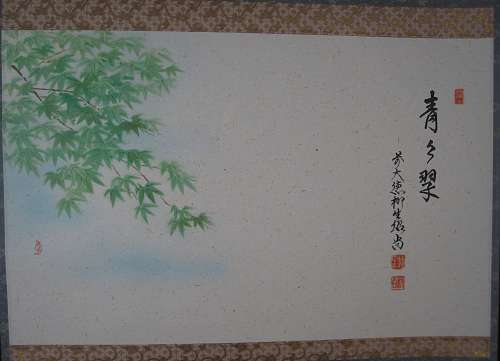 青々翠
前大徳柳生紹尚